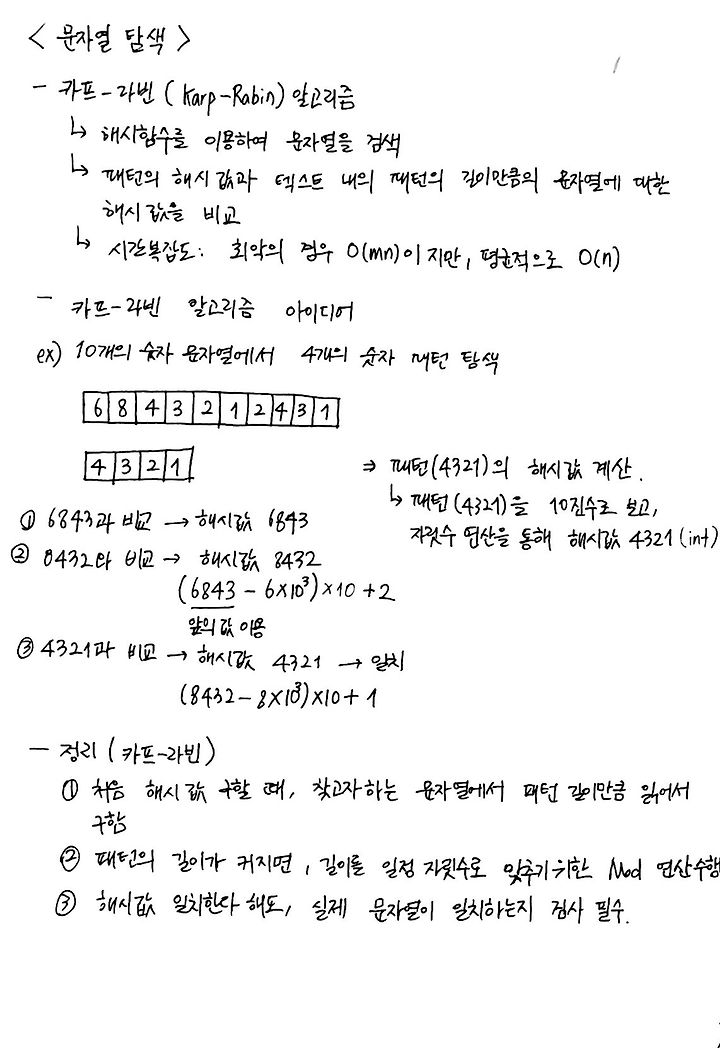 < 문자열 탐색 >
- 카프-라빈 (Karp-Rabin) 알고리즘
↳ 해시함수를 이용하여 문자열을 검색
↳ 패턴의 해시값과 텍스트 내의 패턴의 길이만큼의 문자열에 대한
해시값을 비교
↳ 시간복잡도: 최악의 경우 O(mn)이지만, 평균적으로 O(n)
- 카프-라빈 알고리즘 아이디어
ex) 10개의 숫자 문자열에서 4개의 숫자 패턴 탐색
6 8 4 3 2 1 2 4 3 1
4 3 2 1
⇒ 패턴(4321)의 해시값 계산.
↳ 패턴(4321)을 10진수로 보고,
자릿수 연산을 통해 해시값 4321 (int)
① 6843과 비교 → 해시값 6843
② 8432와 비교 → 해시값 8432
(6843 - 6×10³)×10 + 2
앞의 값 이용
③ 4321과 비교 → 해시값 4321 → 일치
(8432 - 8×10³)×10 + 1
- 정리 (카프-라빈)
① 처음 해시값 구할 때, 찾고자하는 문자열에서 패턴 길이만큼 읽어서
구함
② 패턴의 길이가 커지면, 길이를 일정 자릿수로 맞추기 위한 Mod 연산수행
③ 해시값 일치한다 해도, 실제 문자열이 일치하는지 검사 필수.